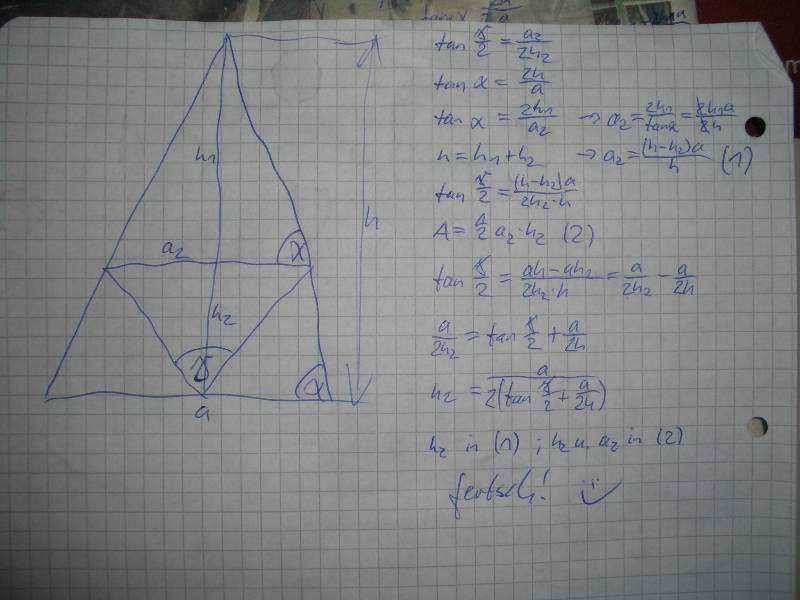 h1
h
a2
α
h2
γ
α
a
tan γ/2 = a2/2h2
tan α = 2h/a
tan α = 2h1/a2 → a2 = 2h1/tanα = 2h1a/2h
h = h1 + h2 → a2 = (h-h2)a/h (1)
tan γ/2 = (h-h2)a/2h2·h
A = 1/2 a2·h2 (2)
tan γ/2 = ah-ah2/2h2·h = a/2h2 - a/2h
a/2h2 = tan γ/2 + a/2h
h2 = a/2(tan γ/2 + a/2h)
h2 in (1) ; h2 u. a2 in (2)
fertsch!